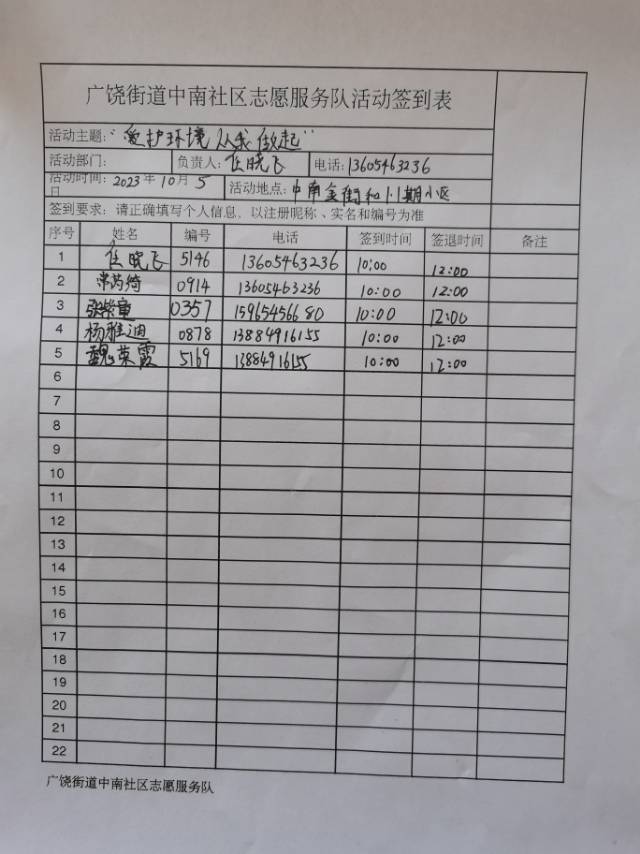 广饶街道中南社区志愿服务队活动签到表
活动主题："爱护环境 从我做起"
活动部门： 负责人：任晓飞 电话：13605463236
活动时间：2023年10月5日 活动地点：中南金街和1.1期小区
签到要求：请正确填写个人信息，以注册昵称、实名和编号为准
序号 姓名 编号 电话 签到时间 签退时间 备注
1 任晓飞 5146 13605463236 10:00 12:00
2 0914 13605463236 10:00 12:00
3 0357 15965456680 10:00 12:00
4 杨雅迪 0878 13884916155 10:00 12:00
5 魏荣霞 5169 13884916155 10:00 12:00
6
7
8
9
10
11
12
13
14
15
16
17
18
19
20
21
22
广饶街道中南社区志愿服务队